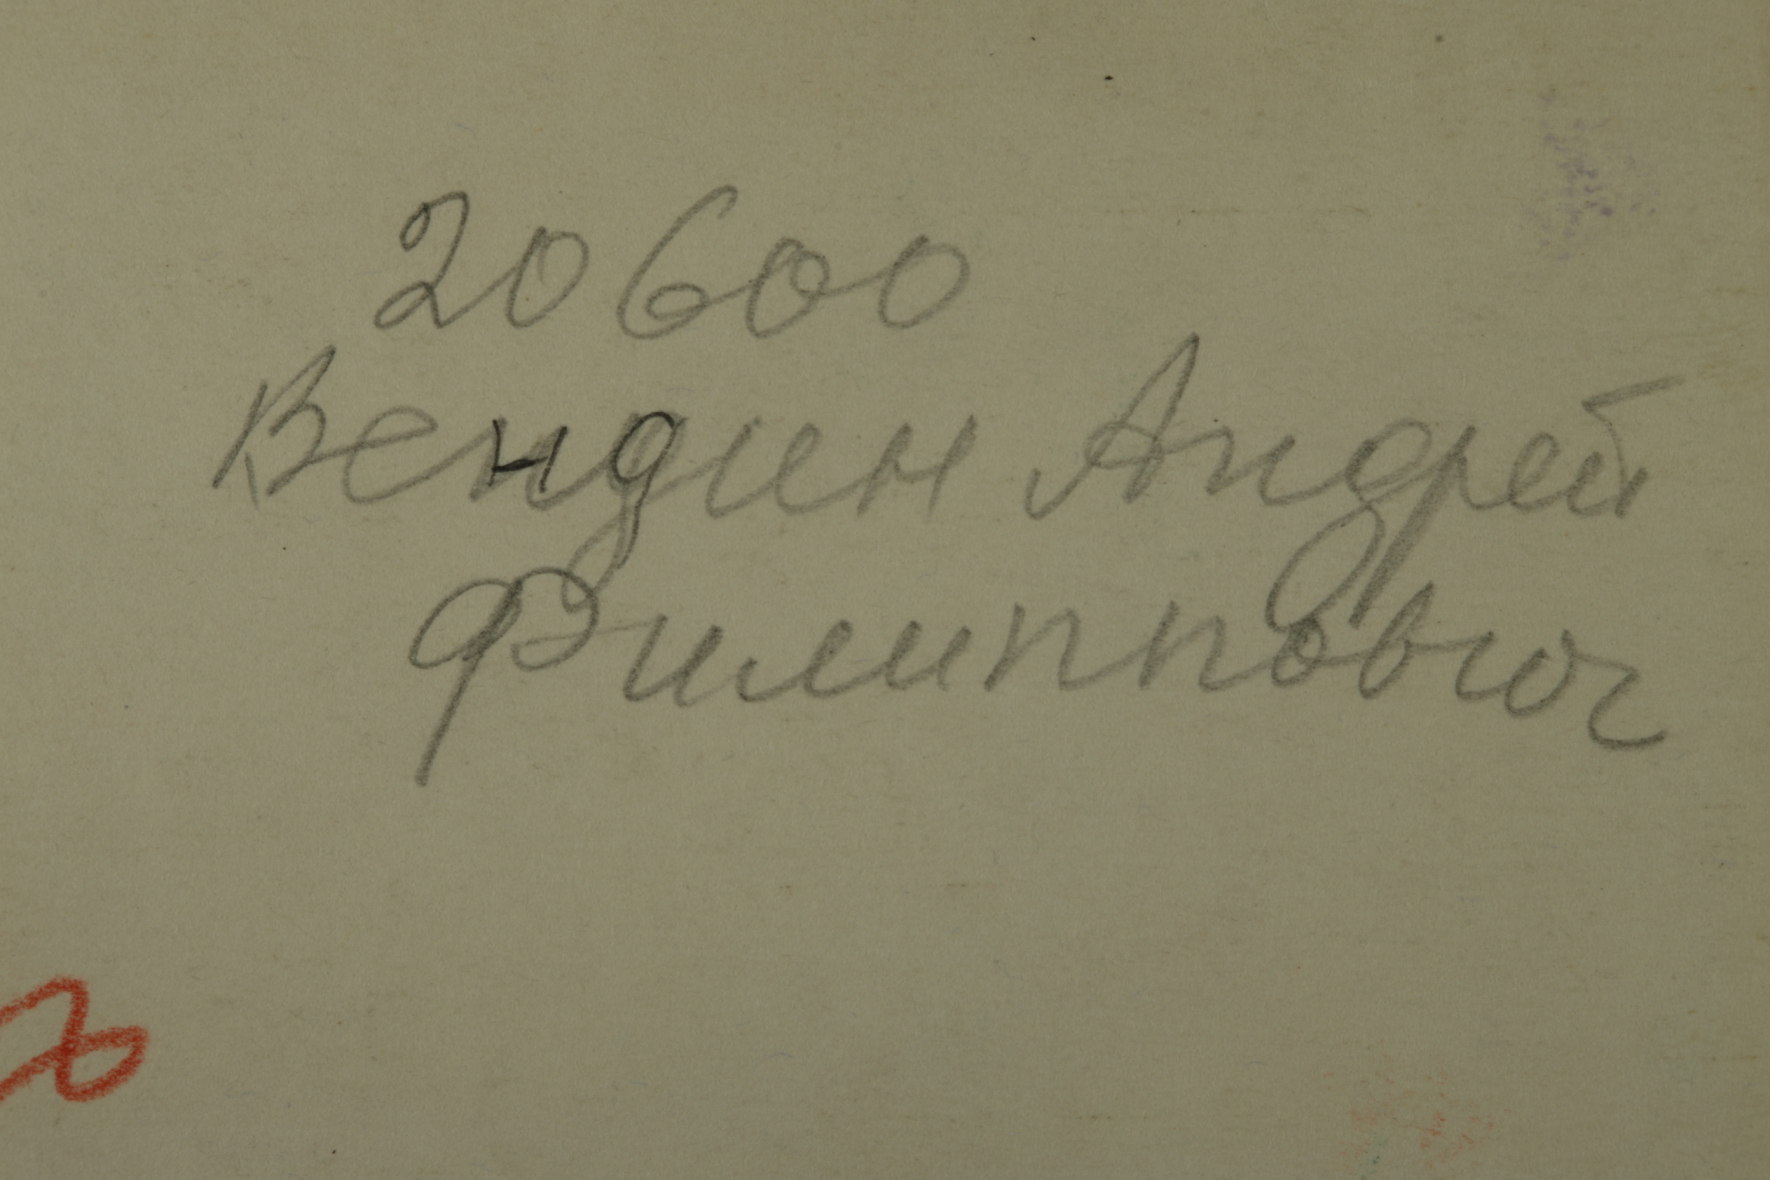 20600
Вендин Андрей
Филиппович